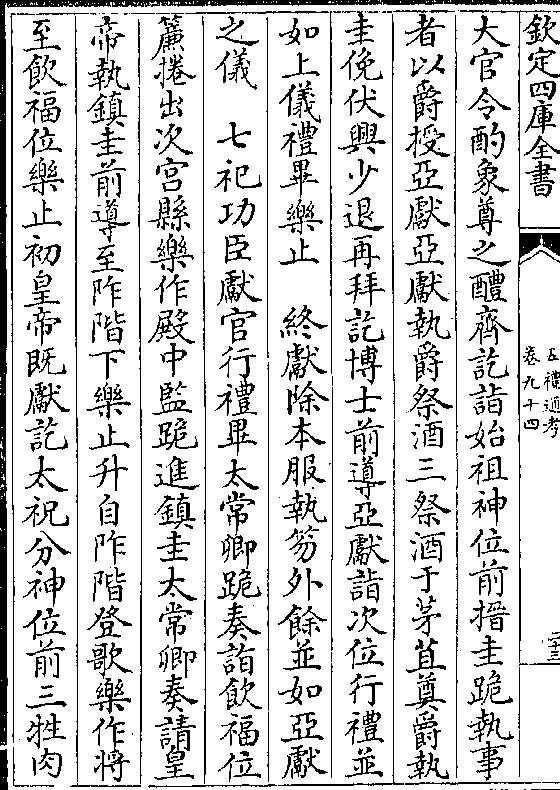 欽定四庫全書
五禮通考
卷九十四
二十三
大官令酌象尊之醴齊訖詣始祖神位前搢圭跪執事
者以爵授亞獻亞獻執爵祭酒三祭酒于茅苴奠爵執
圭俛伏興少退再拜訖博士前導亞獻詣次位行禮並
如上儀禮畢樂止　終獻除本服執笏外餘並如亞獻
之儀　七祀功臣獻官行禮畢太常卿跪奏詣飲福位
簾捲出次宮縣樂作殿中監跪進鎮圭太常卿奏請皇
帝執鎮圭前導至阼階下樂止升自阼階登歌樂作將
至飲福位樂止初皇帝既獻訖太祝分神位前三牲肉